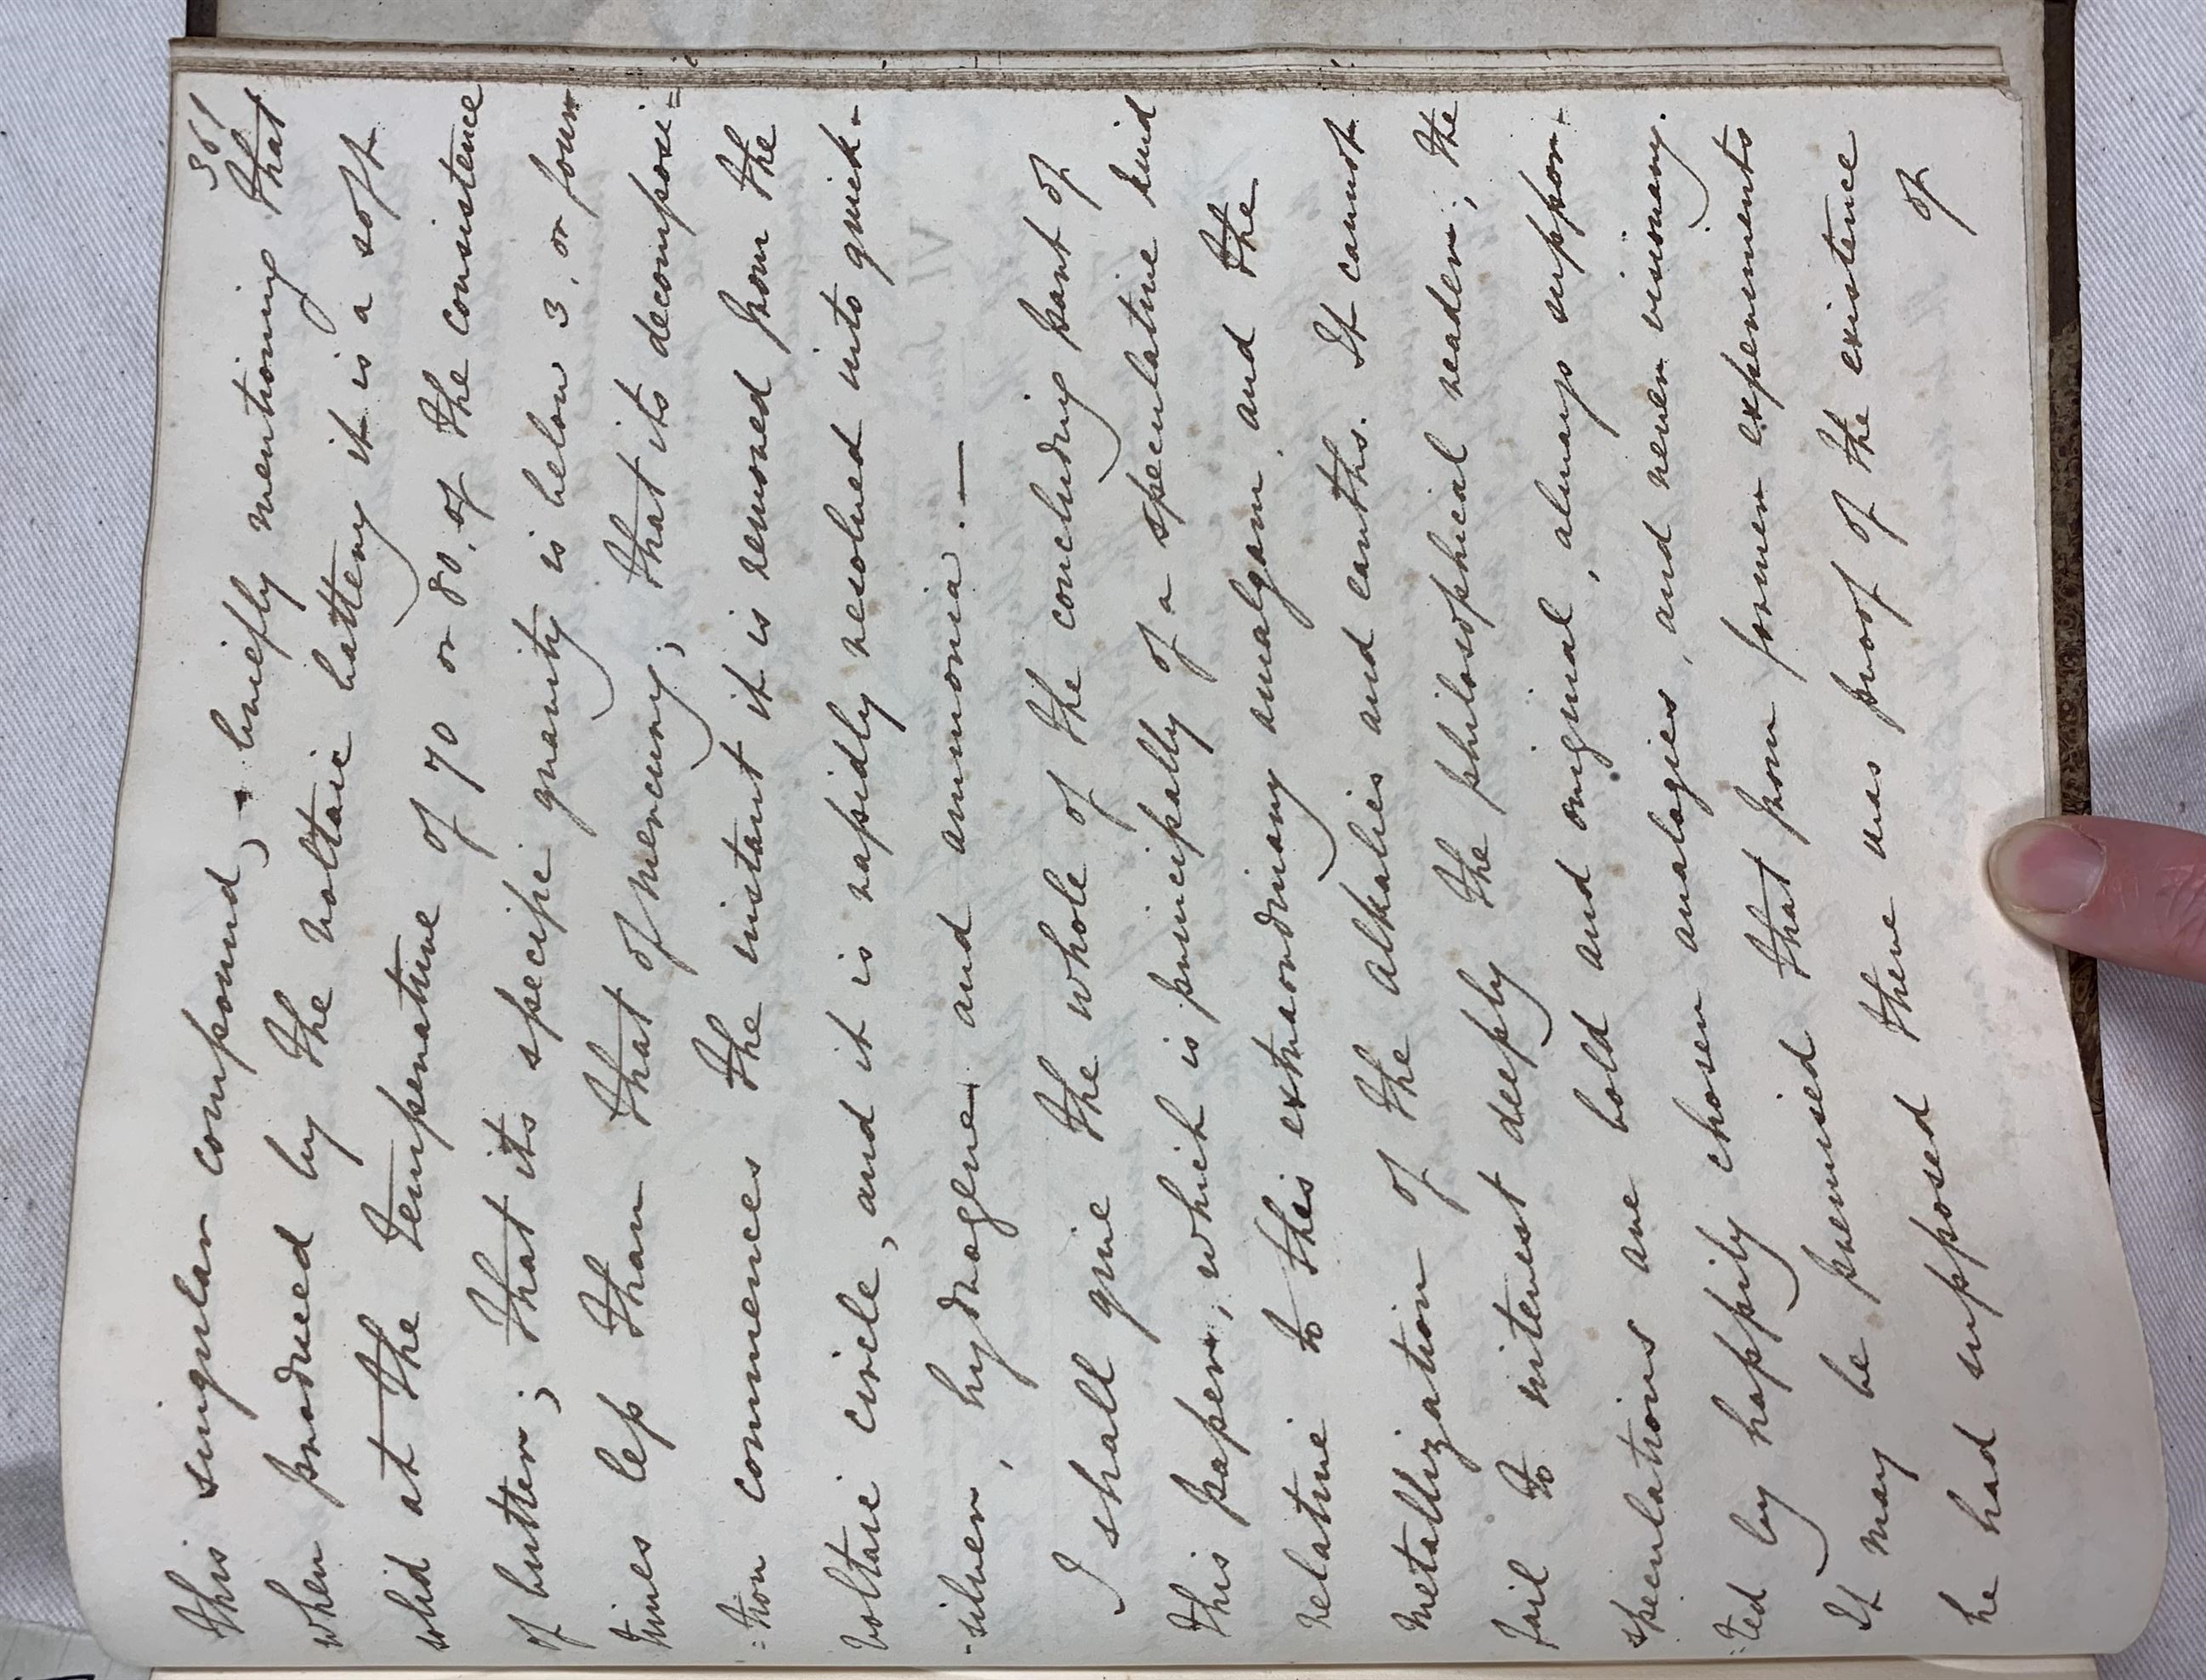 361
this singular compound, - briefly mentioning that
when produced by the voltaic battery it is a soft
solid at the temperature of 70 or 80. of the consistence
of butter; that its specific gravity is below 3, or four
times less than that of mercury; that its decomposi=
=tion commences the instant it is removed from the
voltaic circle, and it is rapidly resolved into quick-
-silver, hydrogene and ammonia. —
I shall give the whole of the concluding part of
this paper, which is principally of a speculative kind
relative to this extraordinary amalgam, and the
metallization of the alkalies and earths. It cannot
fail to interest deeply the philosophical reader; the
speculations are bold and original, always suppor-
-ted by happily chosen analogies, and never visionary.
It may be premised that from former experiments
he had supposed there was proof of the existence
of